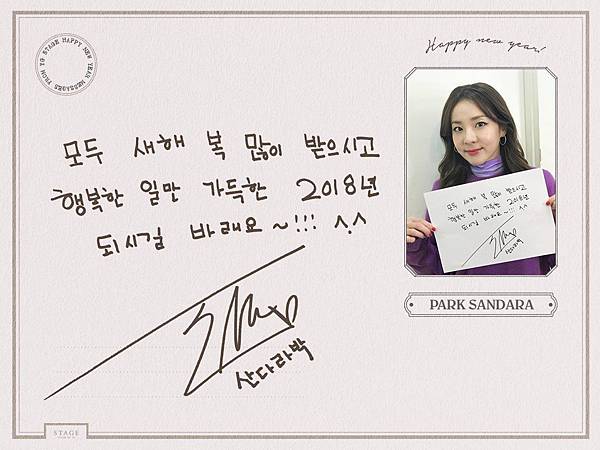 YG STAGE HAPPY NEW YEAR MESSAGES FROM
Happy new year!
모두 새해 복 많이 받으시고
행복한 일만 가득한 2018년
되시길 바래요~!!! ^.^
산다라박
모두 새해 복 많이 받으시고
행복한 일만 가득한 2018년
되시길 바래요~!!! ^.^
산다라박
PARK SANDARA
STAGE